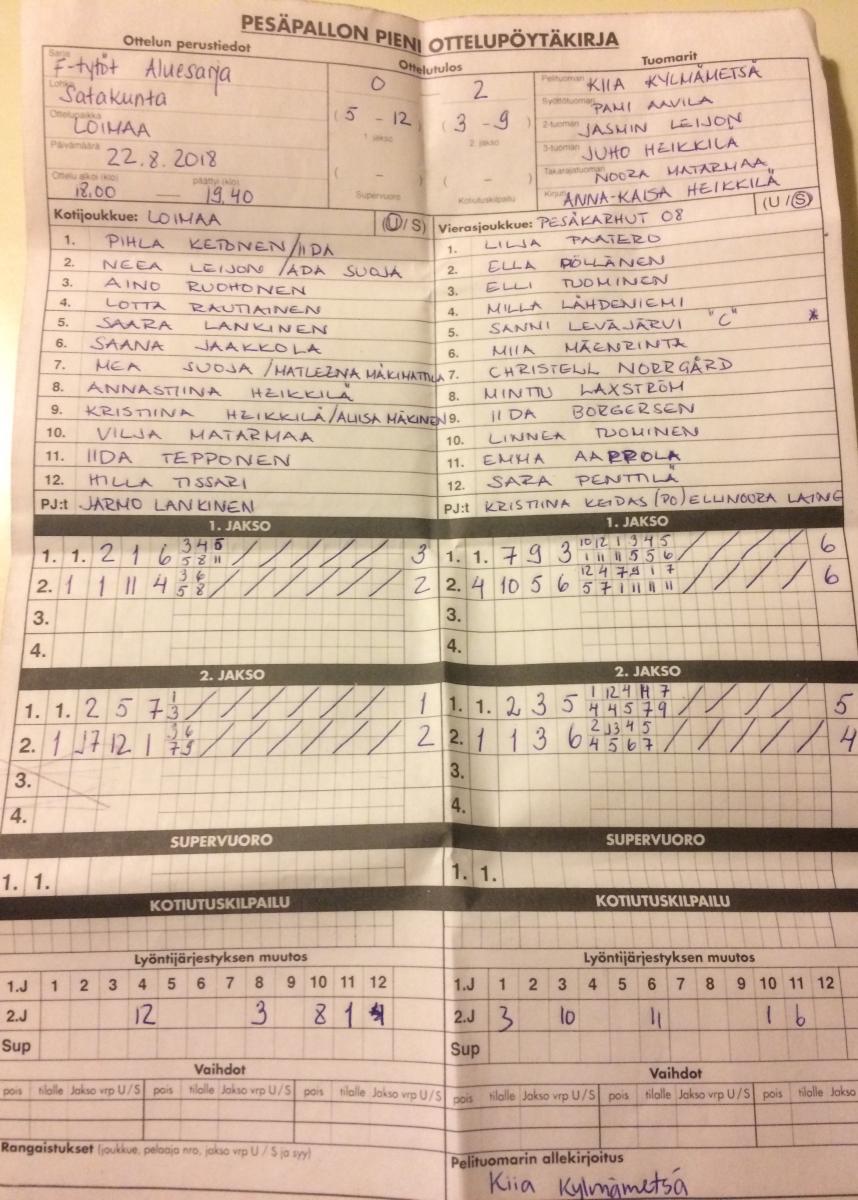 PESÄPALLON PIENI OTTELUPÖYTÄKIRJA
Ottelun perustiedot
Ottelutulos
Tuomarit
Sarja F-tytöt Aluesarja
Lohko Satakunta
Ottelupaikka LOIMAA
Päivämäärä 22.8.2018
Ottelu alkoi (klo) 18.00 — päättyi (klo) 19.40
0 — 2
(5 - 12) (3 - 9)
1. jakso 2. jakso
( - ) ( - )
Supervuoro Kotiutuskilpailu
Pelituomari KIIA KYLMÄMETSÄ
Syöttötuomari PAMI AAVILA
2-tuomari JASMIN LEIJON
3-tuomari JUHO HEIKKILÄ
Takarajatuomari NOORA MATARMAA
Kirjuri ANNA-KAISA HEIKKILÄ
Kotijoukkue: LOIMAA (U/S)
1. PIHLA KETONEN/IIDA
2. NEEA LEIJON/ADA SUOJA
3. AINO RUOHONEN
4. LOTTA RAUTIAINEN
5. SAARA LANKINEN
6. SAANA JAAKKOLA
7. MEA SUOJA/MATLEENA MÄKIMATTILA
8. ANNASTIINA HEIKKILÄ
9. KRISTIINA HEIKKILÄ/ALIISA MÄKINEN
10. VILJA MATARMAA
11. IIDA TEPPONEN
12. HILLA TISSARI
PJ:t JARMO LANKINEN
Vierasjoukkue: PESÄKARHUT 08 (U/S)
1. LILJA PAATERO
2. ELLA PÖLLÄNEN
3. ELLI TUOMINEN
4. MILLA LÄHDENIEMI
5. SANNI LEVÄJÄRVI "C" *
6. MIIA MÄENRINTA
7. CHRISTELL NORRGÅRD
8. MINTTU LAXSTRÖM
9. IIDA BORGERSEN
10. LINNEA TUOMINEN
11. EMMA AARROLA
12. SARA PENTTILÄ
PJ:t KRISTIINA KEIDAS (PO) ELLINOORA LAINE
1. JAKSO
3 4 5
1. 1. 2 1 6 / / / / / / / 3
5 8 11
3 6
2. 1 1 11 4 / / / / / / / 2
5 8
3.
4.
1. JAKSO
10 12 1 3 4 5
1. 1. 7 9 3 / / / / 6
1 11 11 5 5 6
12 4 7 9 1 7
2. 4 10 5 6 / / / / 6
5 7 1 11 11 11
3.
4.
2. JAKSO
1
1. 1. 2 5 7 / / / / / / / 1
3
3 6
2. 1 17 12 1 / / / / / / / 2
7 9
3.
4.
2. JAKSO
1 12 4 11 7
1. 1. 2 3 5 / / / / / 5
4 4 5 7 9
2 13 4 5
2. 1 1 3 6 / / / / / 4
4 5 6 7
3.
4.
SUPERVUORO
1. 1.
SUPERVUORO
1. 1.
KOTIUTUSKILPAILU
KOTIUTUSKILPAILU
Lyöntijärjestyksen muutos
1.J 1 2 3 4 5 6 7 8 9 10 11 12
2.J 12 3 8 1
Sup
Lyöntijärjestyksen muutos
1.J 1 2 3 4 5 6 7 8 9 10 11 12
2.J 3 10 11 1 6
Sup
Vaihdot
pois tilalle Jakso vrp U/S pois tilalle Jakso vrp U/S pois tilalle Jakso vrp U/S
Vaihdot
pois tilalle Jakso vrp U/S pois tilalle Jakso vrp U/S pois tilalle Jakso
Rangaistukset (joukkue, pelaaja nro, jakso vrp U/S ja syy)
Pelituomarin allekirjoitus
Kiia Kylmämetsä